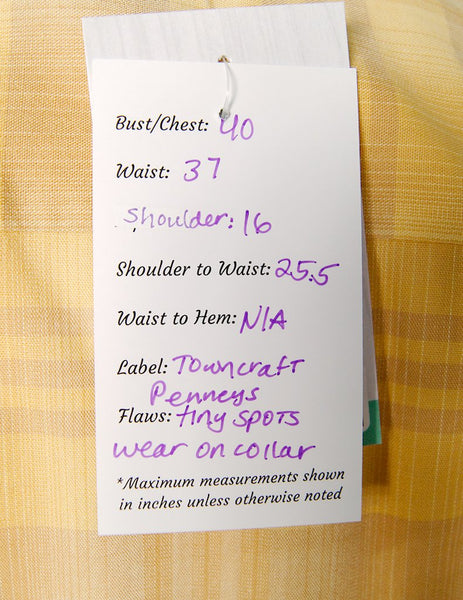 Bust/Chest: 40
Waist: 37
Shoulder: 16
Shoulder to Waist: 25.5
Waist to Hem: N/A
Label: Towncraft
Penneys
Flaws: tiny spots
wear on collar
*Maximum measurements shown
in inches unless otherwise noted